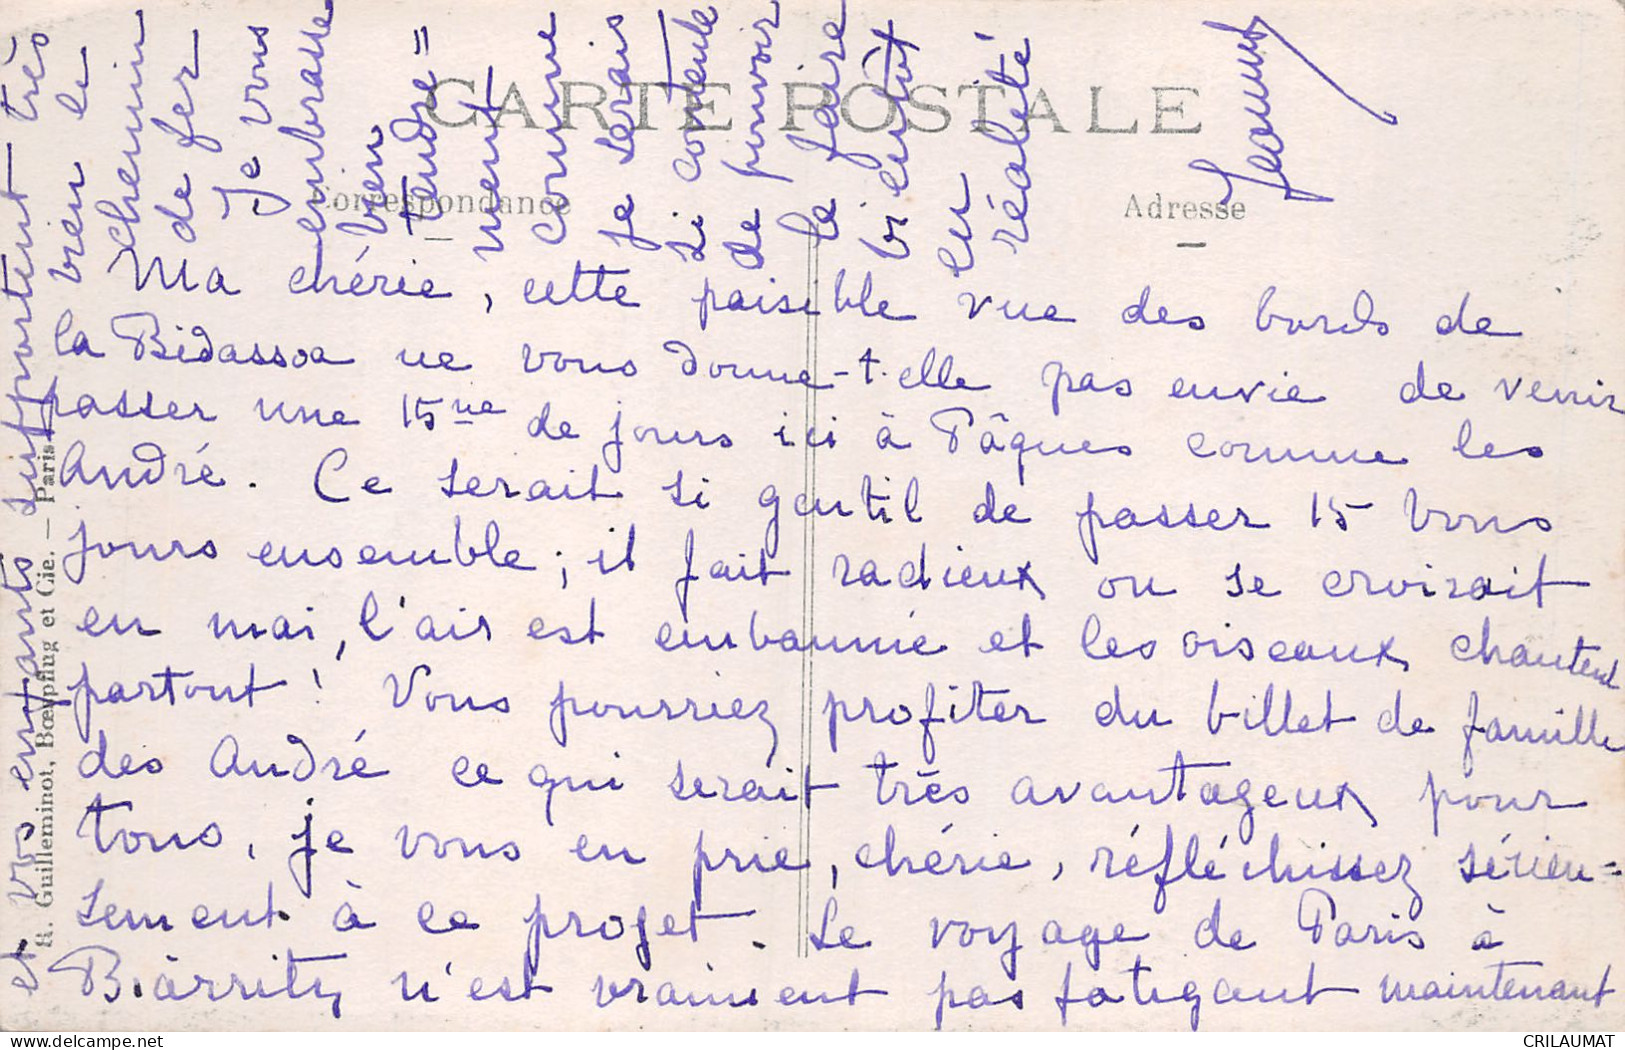 CARTE POSTALE
Correspondance
Adresse
Ma chérie, cette paisible vue des bords de
la Bidassoa ne vous donne-t-elle pas envie de venir
passer une 15ne de jours ici à Pâques comme les
André. Ce serait si gentil de passer 15 bons
jours ensemble ; il fait radieux on se croirait
en mai, l'air est embaumé et les oiseaux chantent
partout ! Vous pourriez profiter du billet de famille
des André ce qui serait très avantageux pour
tous, je vous en prie, chérie, réfléchissez sérieu=
sement à ce projet. Le voyage de Paris à
Biarritz n'est vraiment pas fatigant maintenant
et vos enfants supportent très
bien le
chemin
de fer
Je vous
embrasse
bien
tendre=
ment
comme
je serais
si contente
de pouvoir
le faire
bientôt
en
réalité
R. Guilleminot, Bœspflug et Cie. — Paris
CRILAUMAT